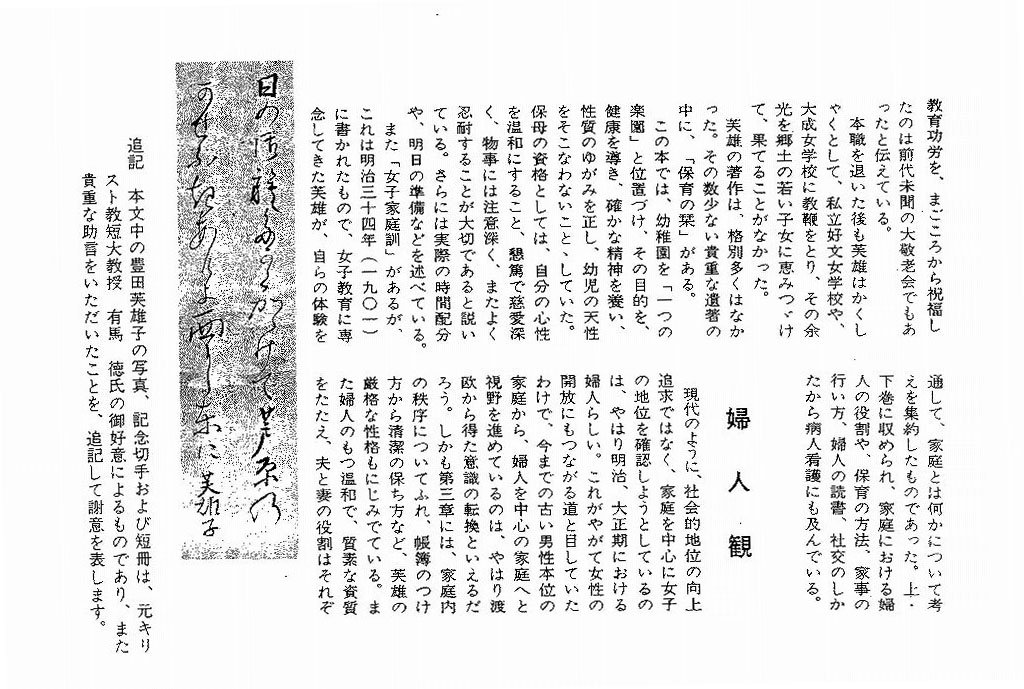 教育功労を、まごころから祝福し
たのは前代未聞の大敬老会でもあ
ったと伝えている。
本職を退いた後も芙雄はかくし
ゃくとして、私立好文女学校や、
大成女学校に教鞭をとり、その余
光を郷土の若い子女に恵みつゞけ
て、果てることがなかった。
芙雄の著作は、格別多くはなか
った。その数少ない貴重な遺著の
中に、「保育の栞」がある。
この本では、幼稚園を「一つの
楽園」と位置づけ、その目的を、
健康を導き、確かな精神を養い、
性質のゆがみを正し、幼児の天性
をそこなわないこと、していた。
保母の資格としては、自分の心性
を温和にすること、懇篤で慈愛深
く、物事には注意深く、またよく
忍耐することが大切であると説い
ている。さらには実際の時間配分
や、明日の準備などを述べている。
また「女子家庭訓」があるが、
これは明治三十四年（一九〇一）
に書かれたもので、女子教育に専
念してきた芙雄が、自らの体験を
通して、家庭とは何かについて考
えを集約したものであった。上・
下巻に収められ、家庭における婦
人の役割や、保育の方法、家事の
行い方、婦人の読書、社交のしか
たから病人看護にも及んでいる。
婦人観
現代のように、社会的地位の向上
追求ではなく、家庭を中心に女子
の地位を確認しようとしているの
は、やはり明治、大正期における
婦人らしい。これがやがて女性の
開放にもつながる道と目していた
わけで、今までの古い男性本位の
家庭から、婦人を中心の家庭へと
視野を進めているのは、やはり渡
欧から得た意識の転換といえるだ
ろう。しかも第三章には、家庭内
の秩序についてふれ、帳簿のつけ
方から清潔の保ち方など、芙雄の
厳格な性格もにじみでている。ま
た婦人のもつ温和で、質素な資質
をたたえ、夫と妻の役割はそれぞ
芙雄子
追記　本文中の豊田芙雄子の写真、記念切手および短冊は、元キリ
スト教短大教授　有馬　徳氏の御好意によるものであり、また
貴重な助言をいただいたことを、追記して謝意を表します。